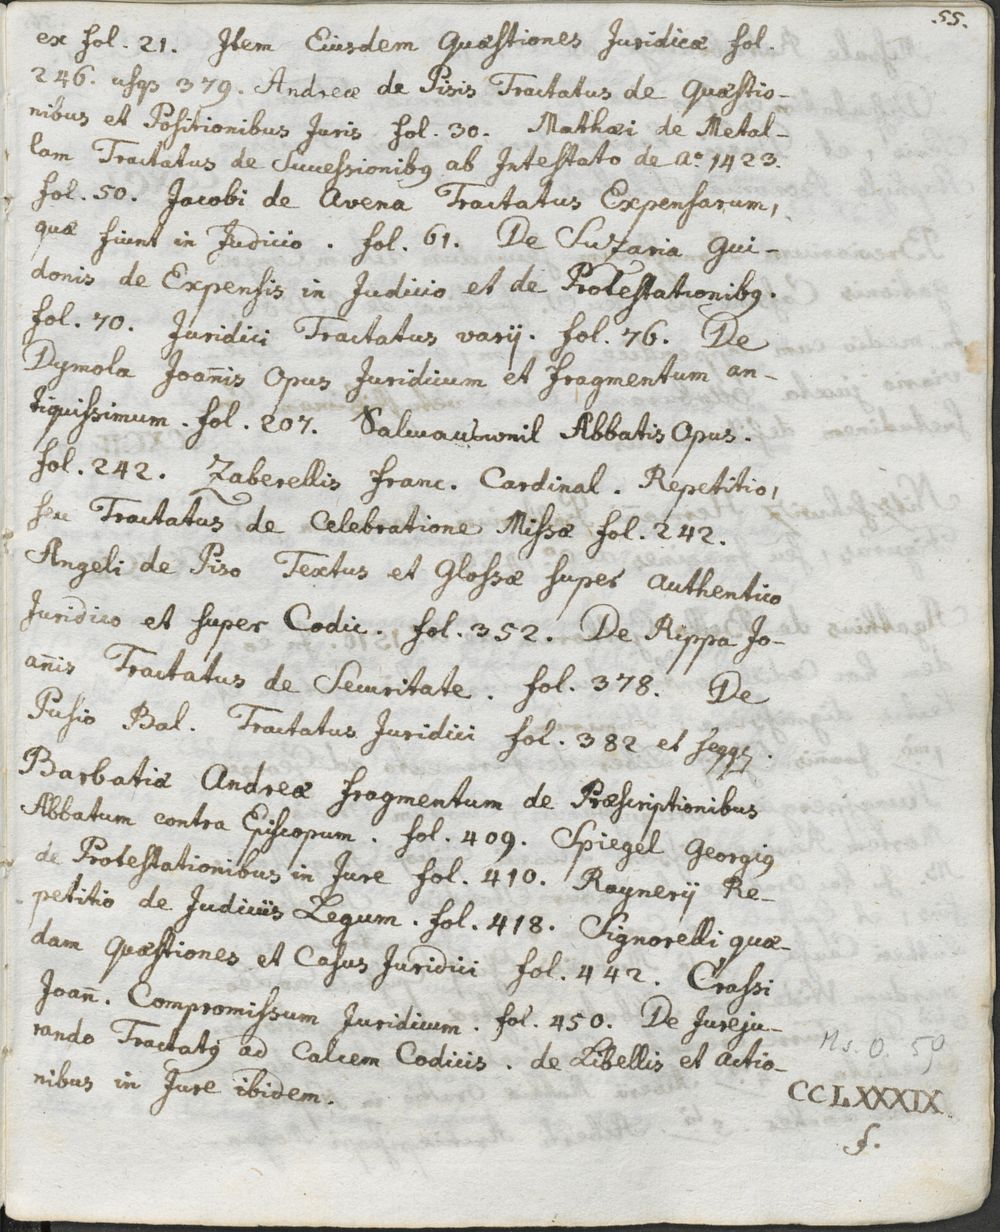 55.
ex fol. 21. Item Eiusdem Quæstiones Juridicæ fol.
246. usqꝫ 379. Andreæ de Pisis Tractatus de Quæstio-
nibus et Positionibus Juris fol. 30. Mathæi de Metal-
lam Tractatus de Successionibꝰ ab Intestato de aº 1423.
fol. 50. Jacobi de Avena Tractatus Expensarum,
quæ fiunt in Judicio. fol. 61. De Suzaria Gui-
donis de Expensis in Judicio et de Protestationibꝰ.
fol. 70. Juridici Tractatus varij. fol. 76. De
Dymola Joañis Opus Juridicum et fragmentum an-
tiquissimum. fol. 207. Abbatis Opus.
fol. 242. Zaberellis Franc. Cardinal. Repetitio,
seu Tractatus de Celebratione Missæ fol. 242.
Angeli de Piso Textus et Glossæ super Authentico
Juridico et super Codic. fol. 352. De Rippa Jo-
añis Tractatus de Securitate. fol. 378. De
Pusio Bal. Tractatus Juridici fol. 382 et seqqꝫ.
Barbatiæ Andreæ fragmentum de Præscriptionibus
Abbatum contra Episcopum. fol. 409. Spiegel Georgiꝰ
de Protestationibus in Jure fol. 410. Raynerij Re-
petitio de Judiciis Legum. fol. 418. Signorelli quæ-
dam Quæstiones et Casus Juridici fol. 442. Crassi
Joañ. Compromissum Juridicum. fol. 450. De Jureju-
rando Tractatꝰ ad Calcem Codicis. de Libellis et Actio-
nibus in Jure ibidem.
Ms. O. 50
CCLXXXIX
f.